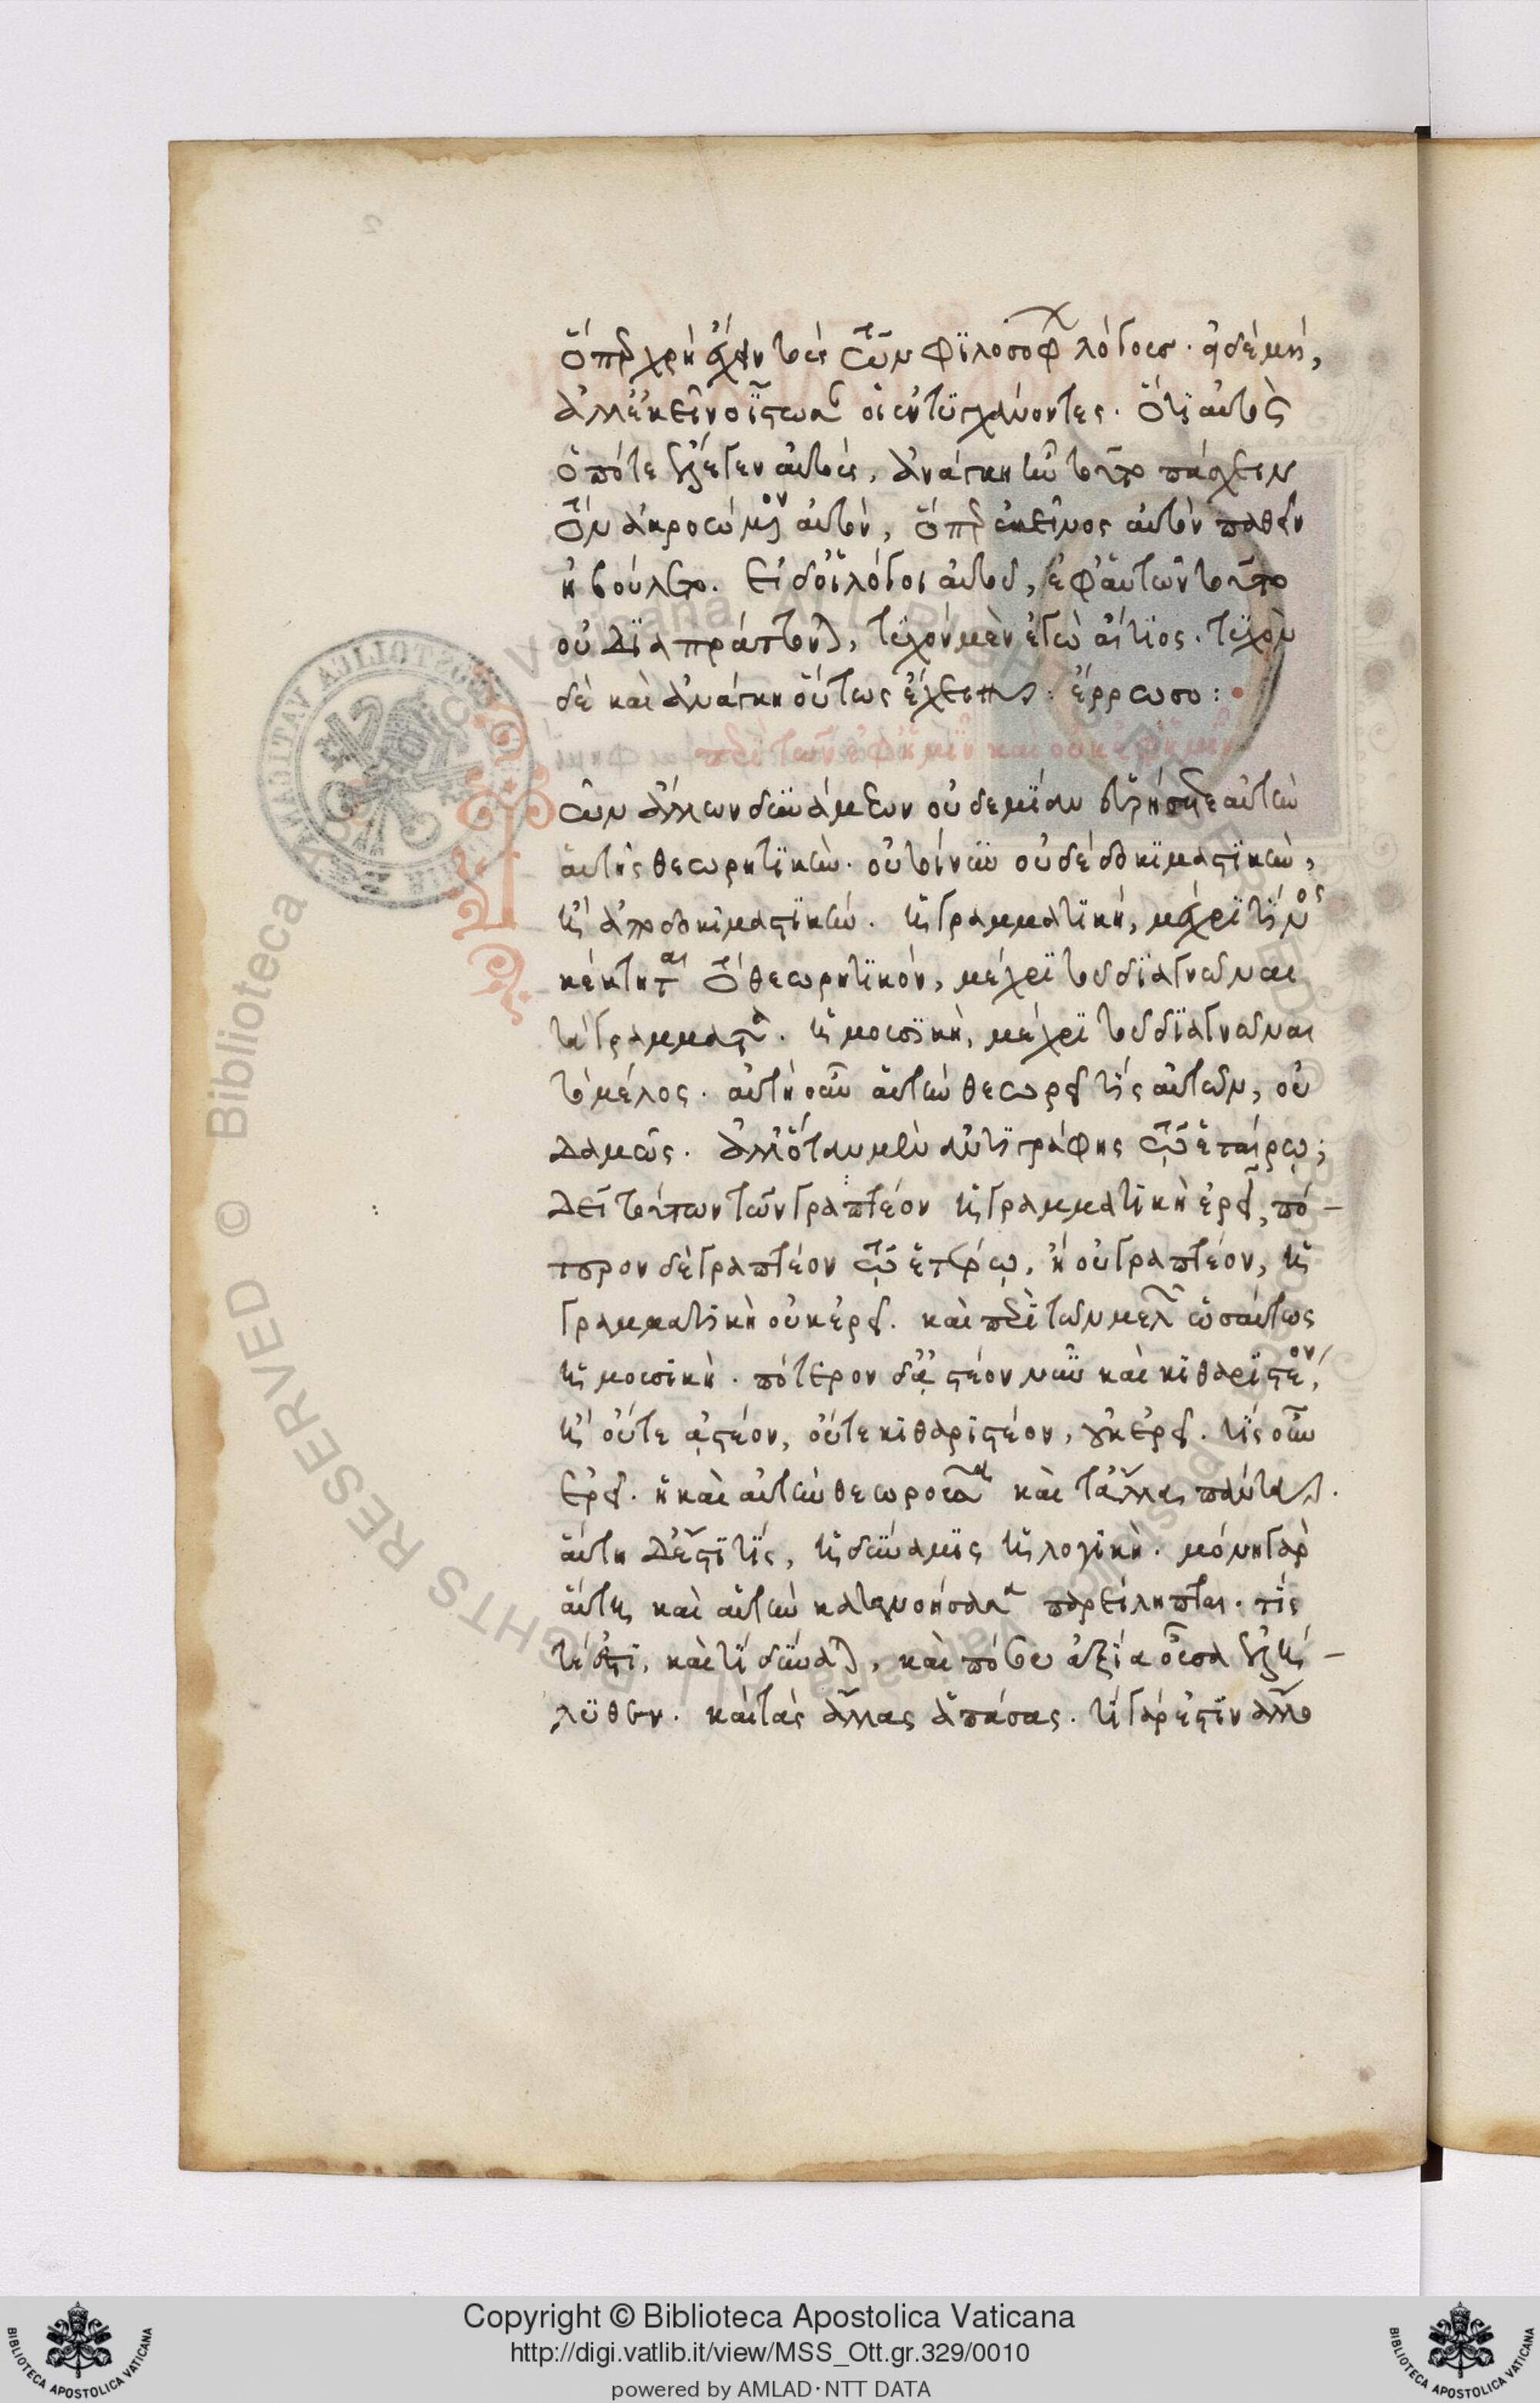 ὅπερ χρὴ ἔχειν τοὺς τῶν φιλοσόφων λόγους. εἰ δὲ μή,
ἀλλ' ἐκεῖνο ἴστωσαν οἱ ἐντυγχάνοντες. ὅτι αὐτὸς
ὁπότε ἔλεγεν αὐτούς, ἀνάγκη ἦν τοῦτο πάσχειν
τὸν ἀκροώμενον αὐτόν, ὅπερ ἐκεῖνος αὐτὸν παθεῖν
ἠβούλετο. εἰ δ' οἱ λόγοι αὐτοί, ἐφ' αὑτῶν τοῦτο
οὐ διαπράττονται, τυχὸν μὲν ἐγὼ αἴτιος. τυχὸν
δὲ καὶ ἀνάγκη οὕτως ἔχειν. ἔρρωσο:
περὶ τῶν ἐφ' ἡμῖν καὶ οὐκ ἐφ' ἡμῖν
Τῶν ἄλλων δυνάμεων οὐδεμίαν εὑρήσετε αὐτὴν
αὑτῆς θεωρητικήν. οὐ τοίνυν οὐδὲ δοκιμαστικήν,
ἢ ἀποδοκιμαστικήν. ἡ γραμματική, μέχρι τίνος
κέκτηται τὸ θεωρητικόν, μέχρι τοῦ διαγνῶναι
τὰ γράμματα. ἡ μουσική, μέχρι τοῦ διαγνῶναι
τὸ μέλος. αὐτὴ οὖν αὑτὴν θεωρεῖ τίς αὐτῶν, οὐ
δαμῶς. ἀλλ' ὅταν μὲν ἂν τι γράφῃς τῷ ἑταίρῳ;
δεῖ τούτων τῶν γραπτέον ἡ γραμματικὴ ἐρεῖ, πό-
τερον δὲ γραπτέον τῷ ἑταίρῳ, ἢ οὐ γραπτέον, ἡ
γραμματικὴ οὐκ ἐρεῖ. καὶ περὶ τῶν μελῶν ὡσαύτως
ἡ μουσική. πότερον δ' ᾀστέον νῦν καὶ κιθαριστέον,
ἢ οὔτε ᾀστέον, οὔτε κιθαριστέον, οὐκ ἐρεῖ. τίς οὖν
ἐρεῖ. ἡ καὶ αὑτὴν θεωροῦσα καὶ τἆλλα πάντα.
αὕτη δ' ἐστὶ τίς, ἡ δύναμις ἡ λογική. μόνη γὰρ
αὕτη καὶ αὑτὴν κατανοήσουσα παρείληπται. τίς
τέ ἐστι, καὶ τί δύναται, καὶ πόσου ἀξία οὖσα ἐλή-
λυθεν. καὶ τὰς ἄλλας ἁπάσας. τί γάρ ἐστιν ἄλλο
Copyright © Biblioteca Apostolica Vaticana
http://digi.vatlib.it/view/MSS_Ott.gr.329/0010
powered by AMLAD·NTT DATA